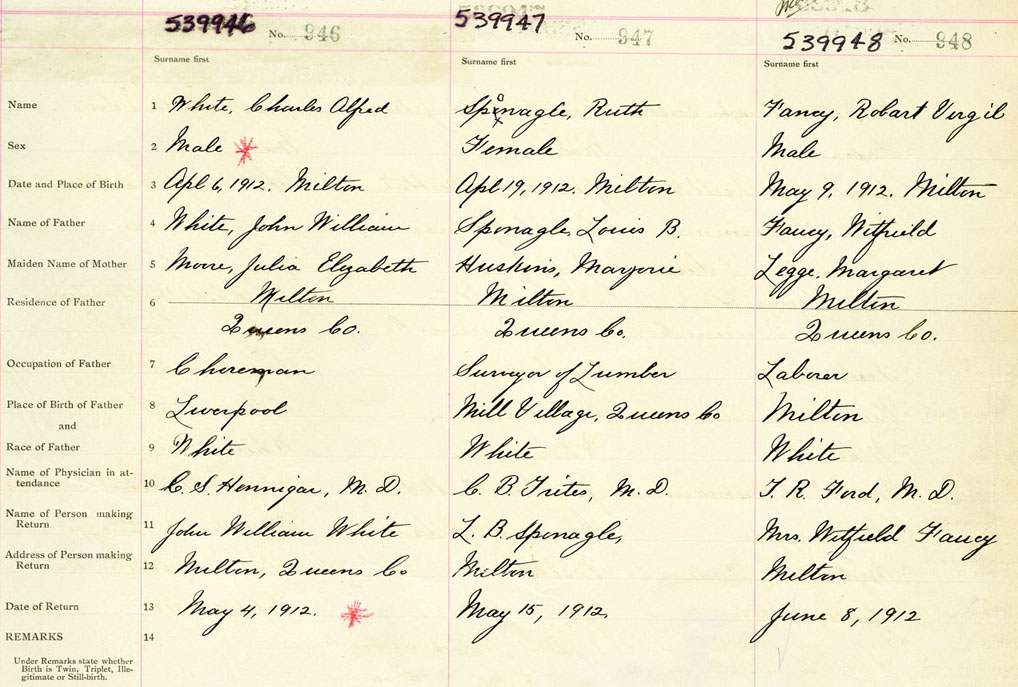 539946 No. 946 539947 No. 947 539948 No. 948
Surname first Surname first Surname first
Name 1 White, Charles Alfred Sponagle, Ruth Fancy, Robart Vergil
Sex 2 Male Female Male
Date and Place of Birth 3 Apl 6, 1912. Milton Apl 19, 1912. Milton May 9, 1912. Milton
Name of Father 4 White, John William Sponagle, Louis B. Fancy, Witfield
Maiden Name of Mother 5 Moore, Julia Elyzabeth Huskins, Marjorie Legge, Margaret
Residence of Father 6 Milton Milton Milton
Queens Co. Queens Co. Queens Co.
Occupation of Father 7 Choreman Surveyor of Lumber Laborer
Place of Birth of Father 8 Liverpool Mill Village, Queens Co Milton
and
Race of Father 9 White White White
Name of Physician in at-
tendance 10 C. S. Hennigar, M. D. C. B. Trites, M. D. T. R. Ford, M. D.
Name of Person making
Return 11 John William White L. B. Sponagle, Mrs. Witfield Fancy
Address of Person making
Return 12 Milton, Queens Co Milton Milton
Date of Return 13 May 4, 1912. May 15, 1912, June 8, 1912
REMARKS 14
Under Remarks state whether
Birth is Twin, Triplet, Ille-
gitimate or Still-birth.